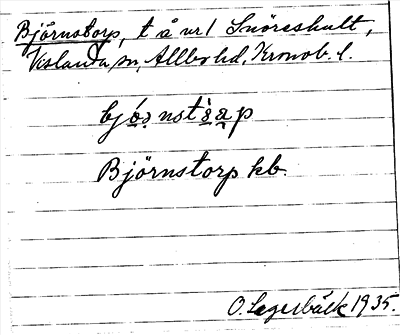 Björnstorp, t å nr 1 Snöreshult,
Vislanda sn, Allbo hd, Kronob. l.
Björnstorp kb.
O. Lagerbäck 1935.